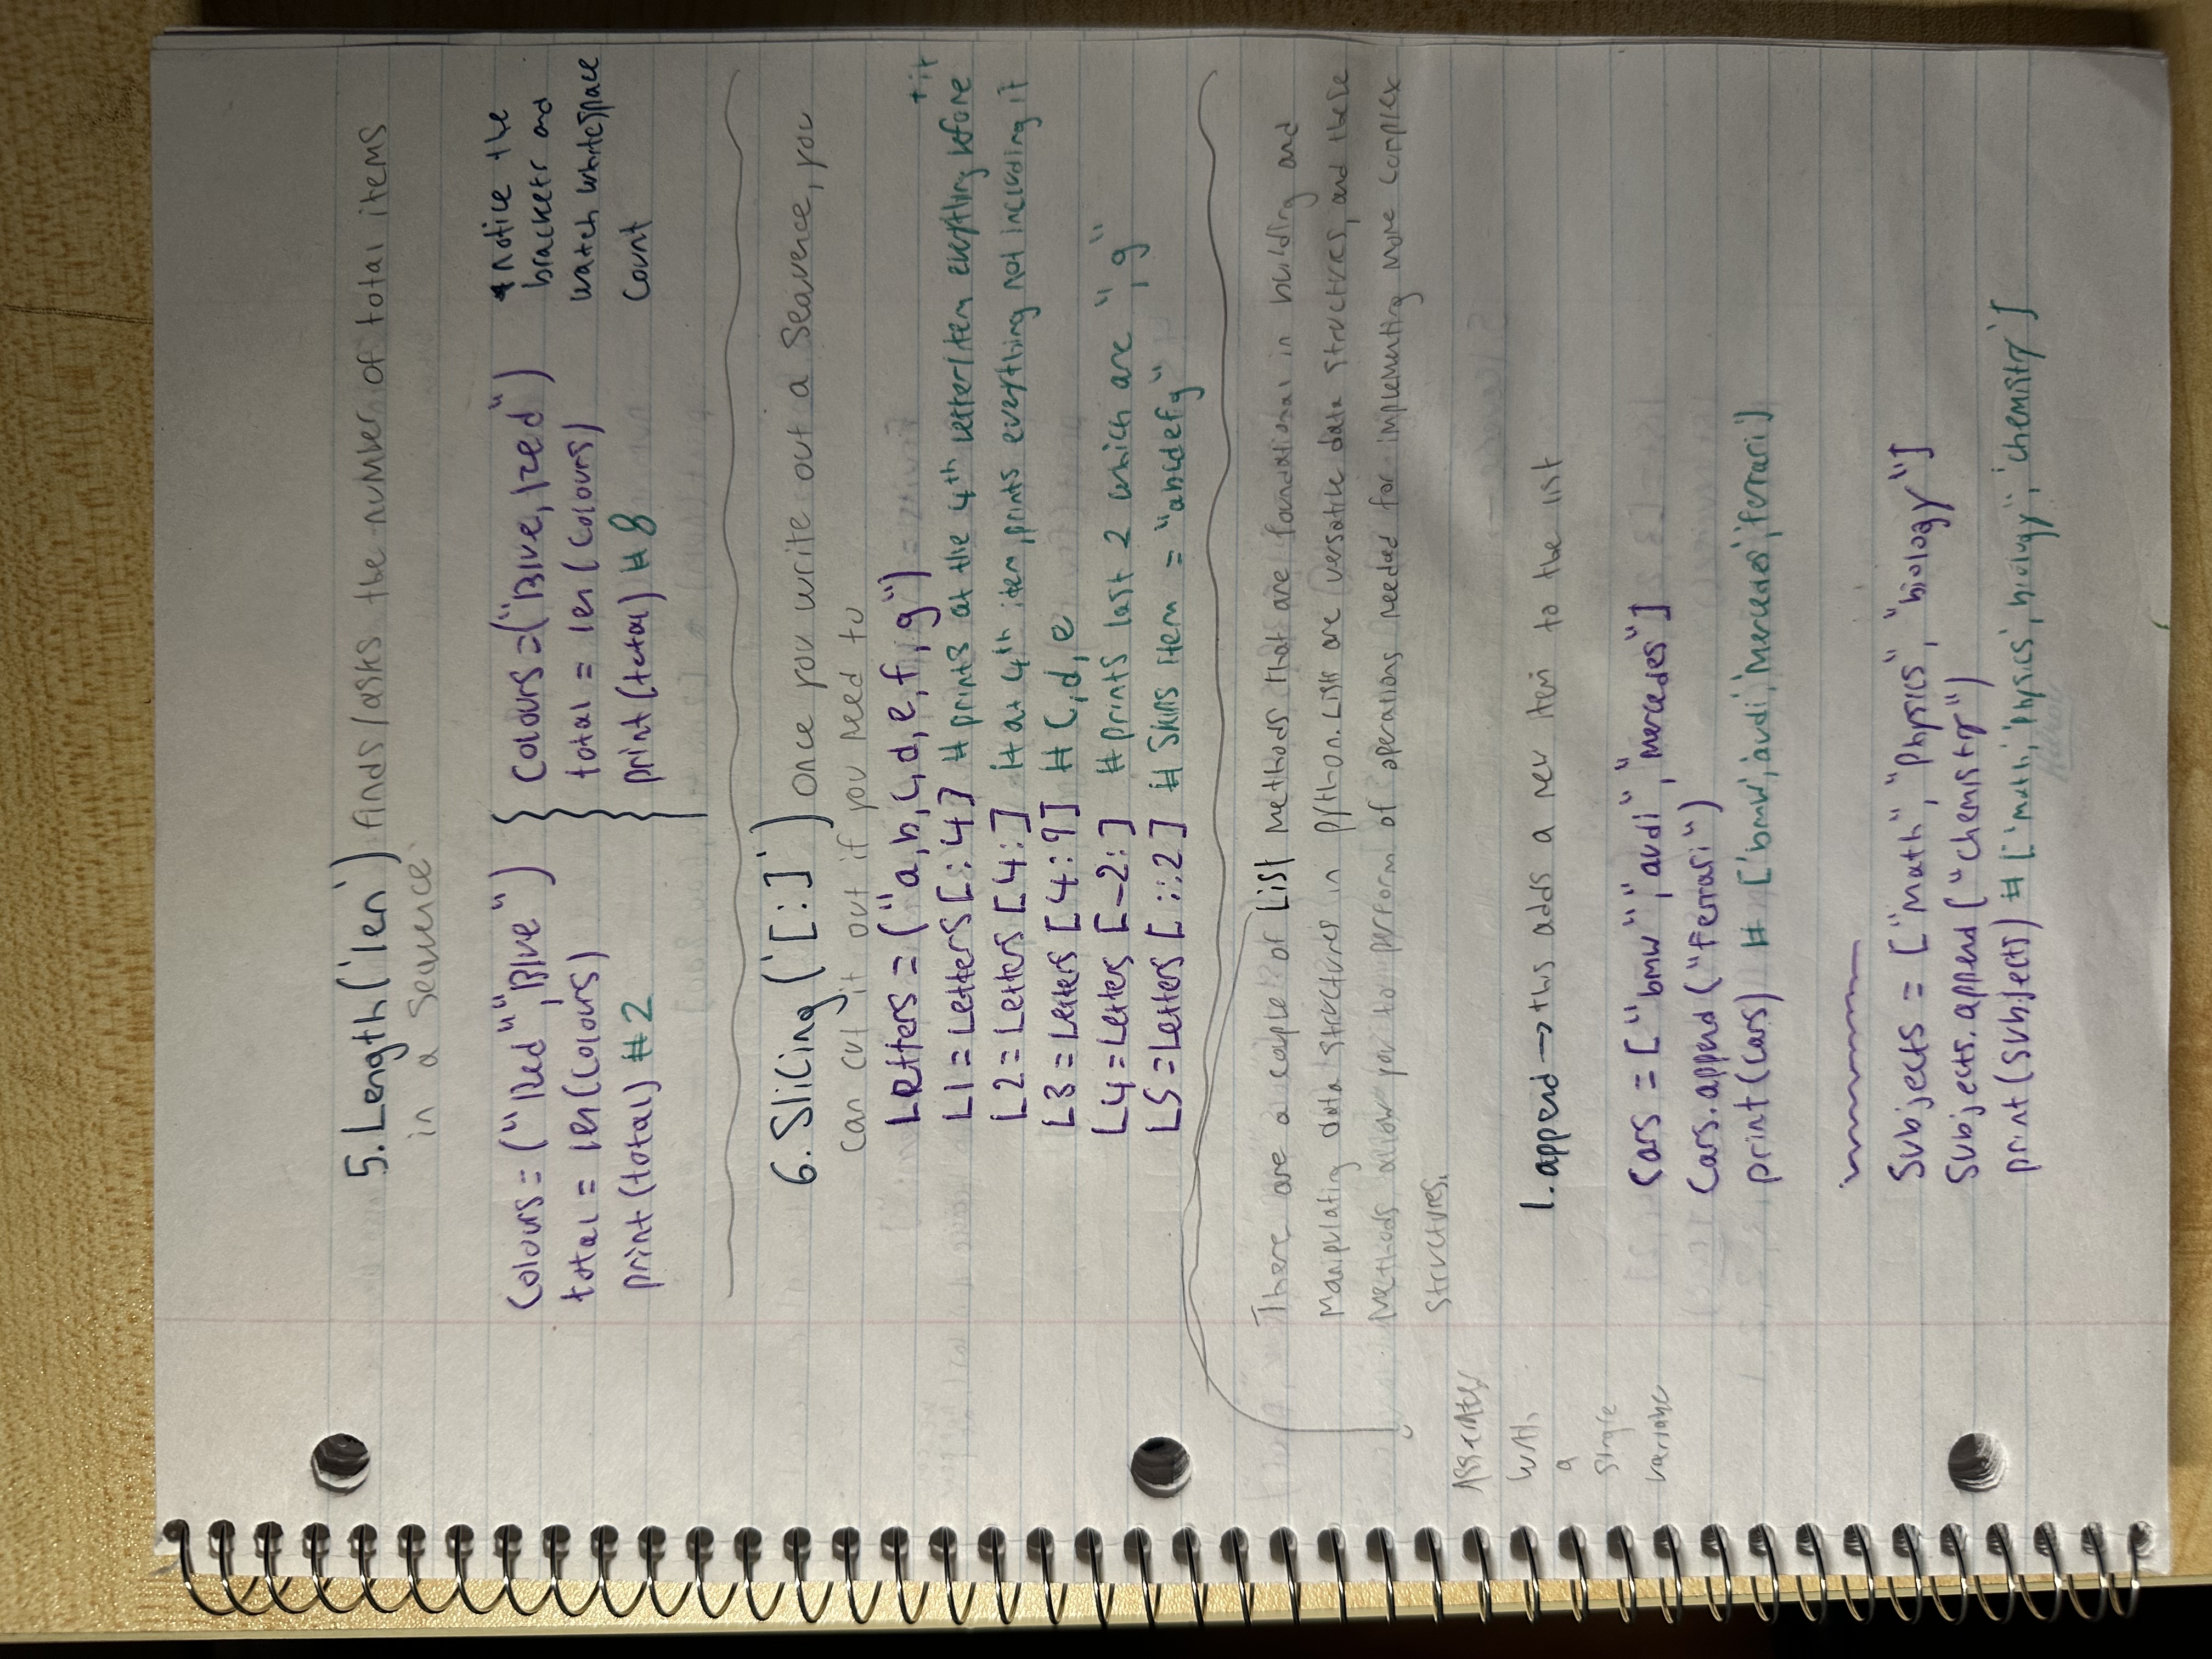 5. Length ('len') finds/asks the number of total items
in a sequence
Colours = ("Red","Blue")
total = len(Colours)
print(total) #2
Colours =("Blue, Red")
total = len (Colours)
print (total) #8
*notice the
brackets and
watch whitespace
count
6. Slicing ('[:]') Once you write out a sequence, you
can cut it out if you need to
Letters = ("a,b,c,d,e,f,g")
+it
L1 = Letters [:4] # prints at the 4th letter/item everything before
L2 = Letters [4:] # at 4th item, prints everything not including it
L3 = Letters [4:9] # c,d,e
L4 = Letters [-2:] # prints last 2 which are ",g"
L5 = Letters [::2] # Skips item = "abcdefg"
There are a couple of List Methods that are foundational in building and
Manipulating data structures in python. Lists are versatile data structures, and these
Methods allow you to perform of operations needed for implementing more complex
structures.
with
a
single
variable
1. append → this adds a new item to the list
Cars = ["bmw","audi","Mercedes"]
Cars.append ("Ferrari")
print (Cars) # ['bmw','audi','Mercedes','ferrari']
Subjects = ["Math", "Physics", "biology"]
Subjects.append ("chemistry")
print (subjects) # ['Math,'Physics', biology", 'chemistry']
Hilroy